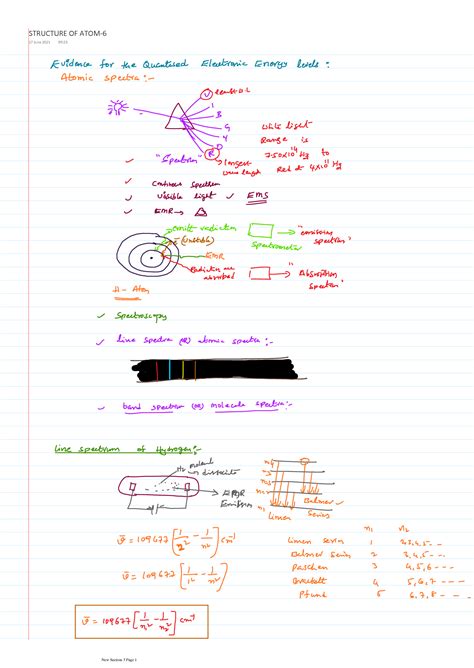 STRUCTURE OF ATOM-6
Evidence for the Quantised Electronic Energy levels :
Atomic spectra :-
V
I
B
G
Y
O
R
White light
Range is
7.50x10¹⁴ Hz to
Red at 4x10¹⁴ Hz
"Spectrum"
longest
wave length
✓ visible light ✓ EMS
✓ EMR→
emit radiation
e⁻ (Unstable)
EMR
Radiation are
absorbed
H - Atom
→ "emission
spectrum"
Spectrometer
→ "Absorption
✓ Spectroscopy
✓ line spectra (OR) atomic spectra :-
✓ band spectrum (OR) molecule spectra :-
Line spectrum of Hydrogen :-
H₂
dissociate
EMR
n4
n3
n2
n1
Balmer
Series
Limen
ν̄ = 109677 [1/2² - 1/n²] cm⁻¹
ν̄ = 109677 [1/1² - 1/n²]
ν̄ = 109677 [1/n₁² - 1/n₂²] cm⁻¹
n₁ n₂
Limen series 1 2,3,4,5...
Balmer Series 2 3,4,5...
Paschen 3 4,5,6 - - -
Brackett 4 5,6,7 - - -
Pfund 5 6,7,8 - - -
New Section 1 Page 1